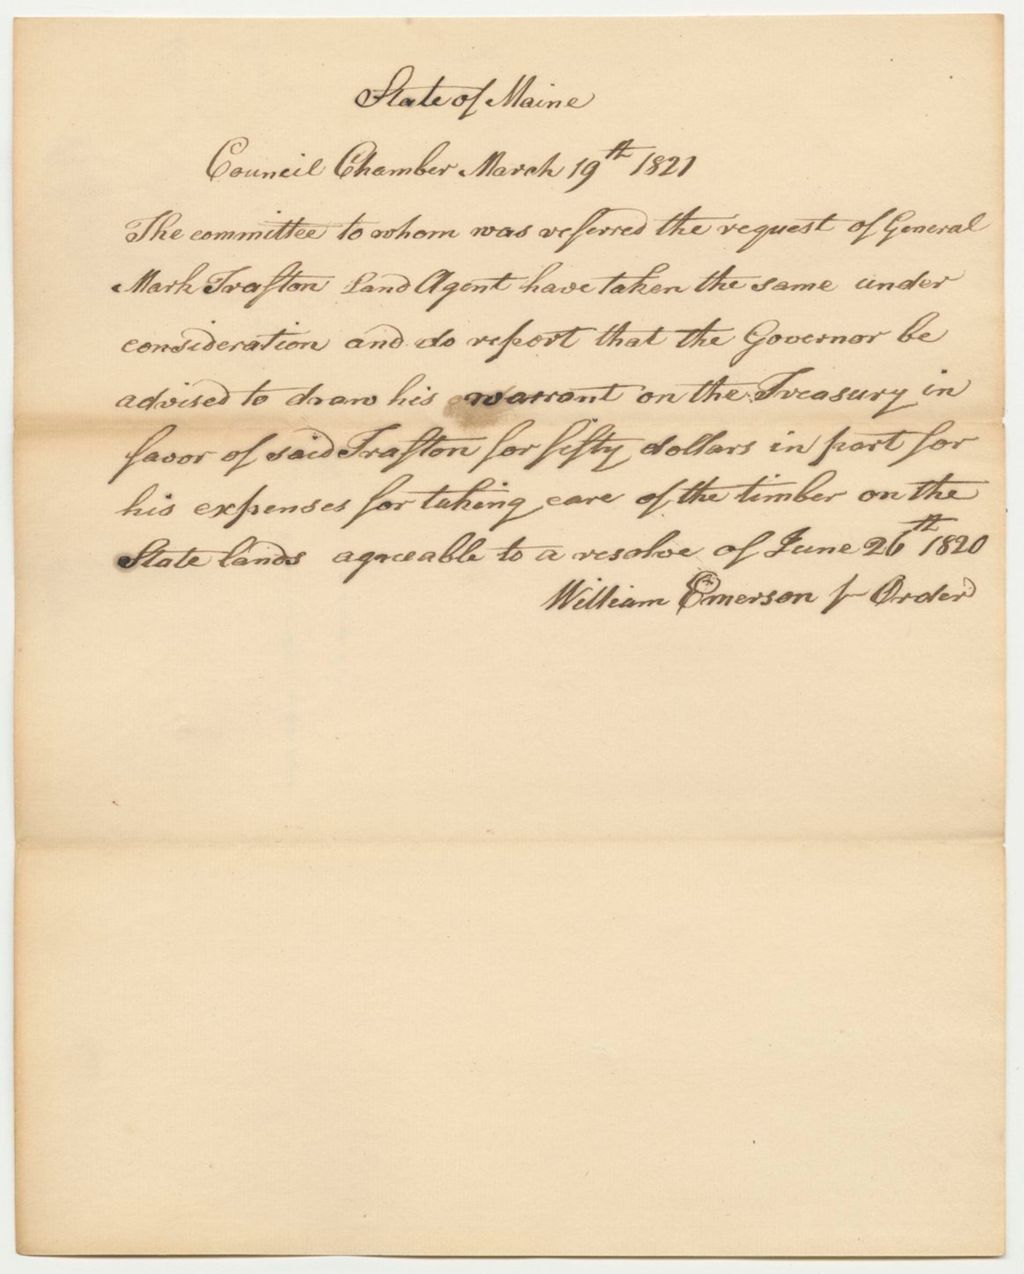 State of Maine
Council Chamber March 19th 1821
The committee to whom was referred the request of General
Mark Trafton Land Agent have taken the same under
consideration and do report that the Governor be
advised to draw his warrant on the Treasury in
favor of said Trafton for fifty dollars in part for
his expenses for taking care of the timber on the
State lands agreeable to a resolve of June 26th 1820
William Emerson pr Order